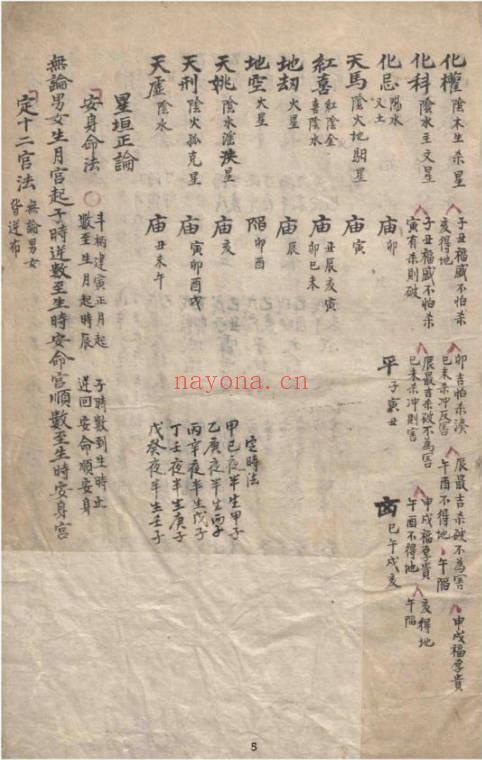 化權 陰木生杀星 子丑福威不怕杀 亥得地 卯吉怕杀湊 巳未杀冲反害 辰最吉杀破不為害 午酉不得地 午陷 申戌福享貴
化科 陰水主文星 子丑福威不怕杀 寅有杀則破 辰最吉杀破不為害 巳未杀冲則害 申戌福享貴 午酉不得地 亥得地 午陷
化忌 陽水 又土 庙 卯 平 子寅丑 凶 巳午戌亥
天馬 陰火地驲星 庙 寅
紅喜 紅陰金 喜陰水 庙 丑辰亥寅 卯巳未
地劫 火星 庙 辰
地空 火星 陷 卯酉
天姚 陰水淫泆星 庙 亥
天刑 陰火孤克星 庙 寅卯酉戌
天虛 陰水 庙 丑未午
定時法
甲巳夜半生甲子
乙庚夜半生丙子
丙辛夜半生戊子
丁壬夜半生庚子
戊癸夜半生壬子
星垣正論
安身命法 斗柄建寅正月起 數至生月起時辰 子時數到生時止 逆回安命順安身
無論男女生月宮起子時逆數至生時安命宮順數至生時安身宮
定十二宮法 無論男女 皆逆布
nayona.cn
5